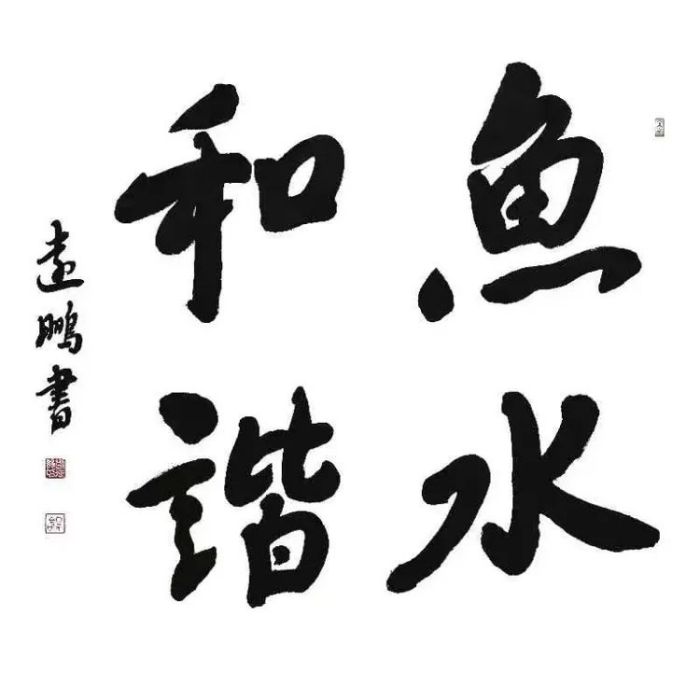 魚水
和諧
遠鵬書